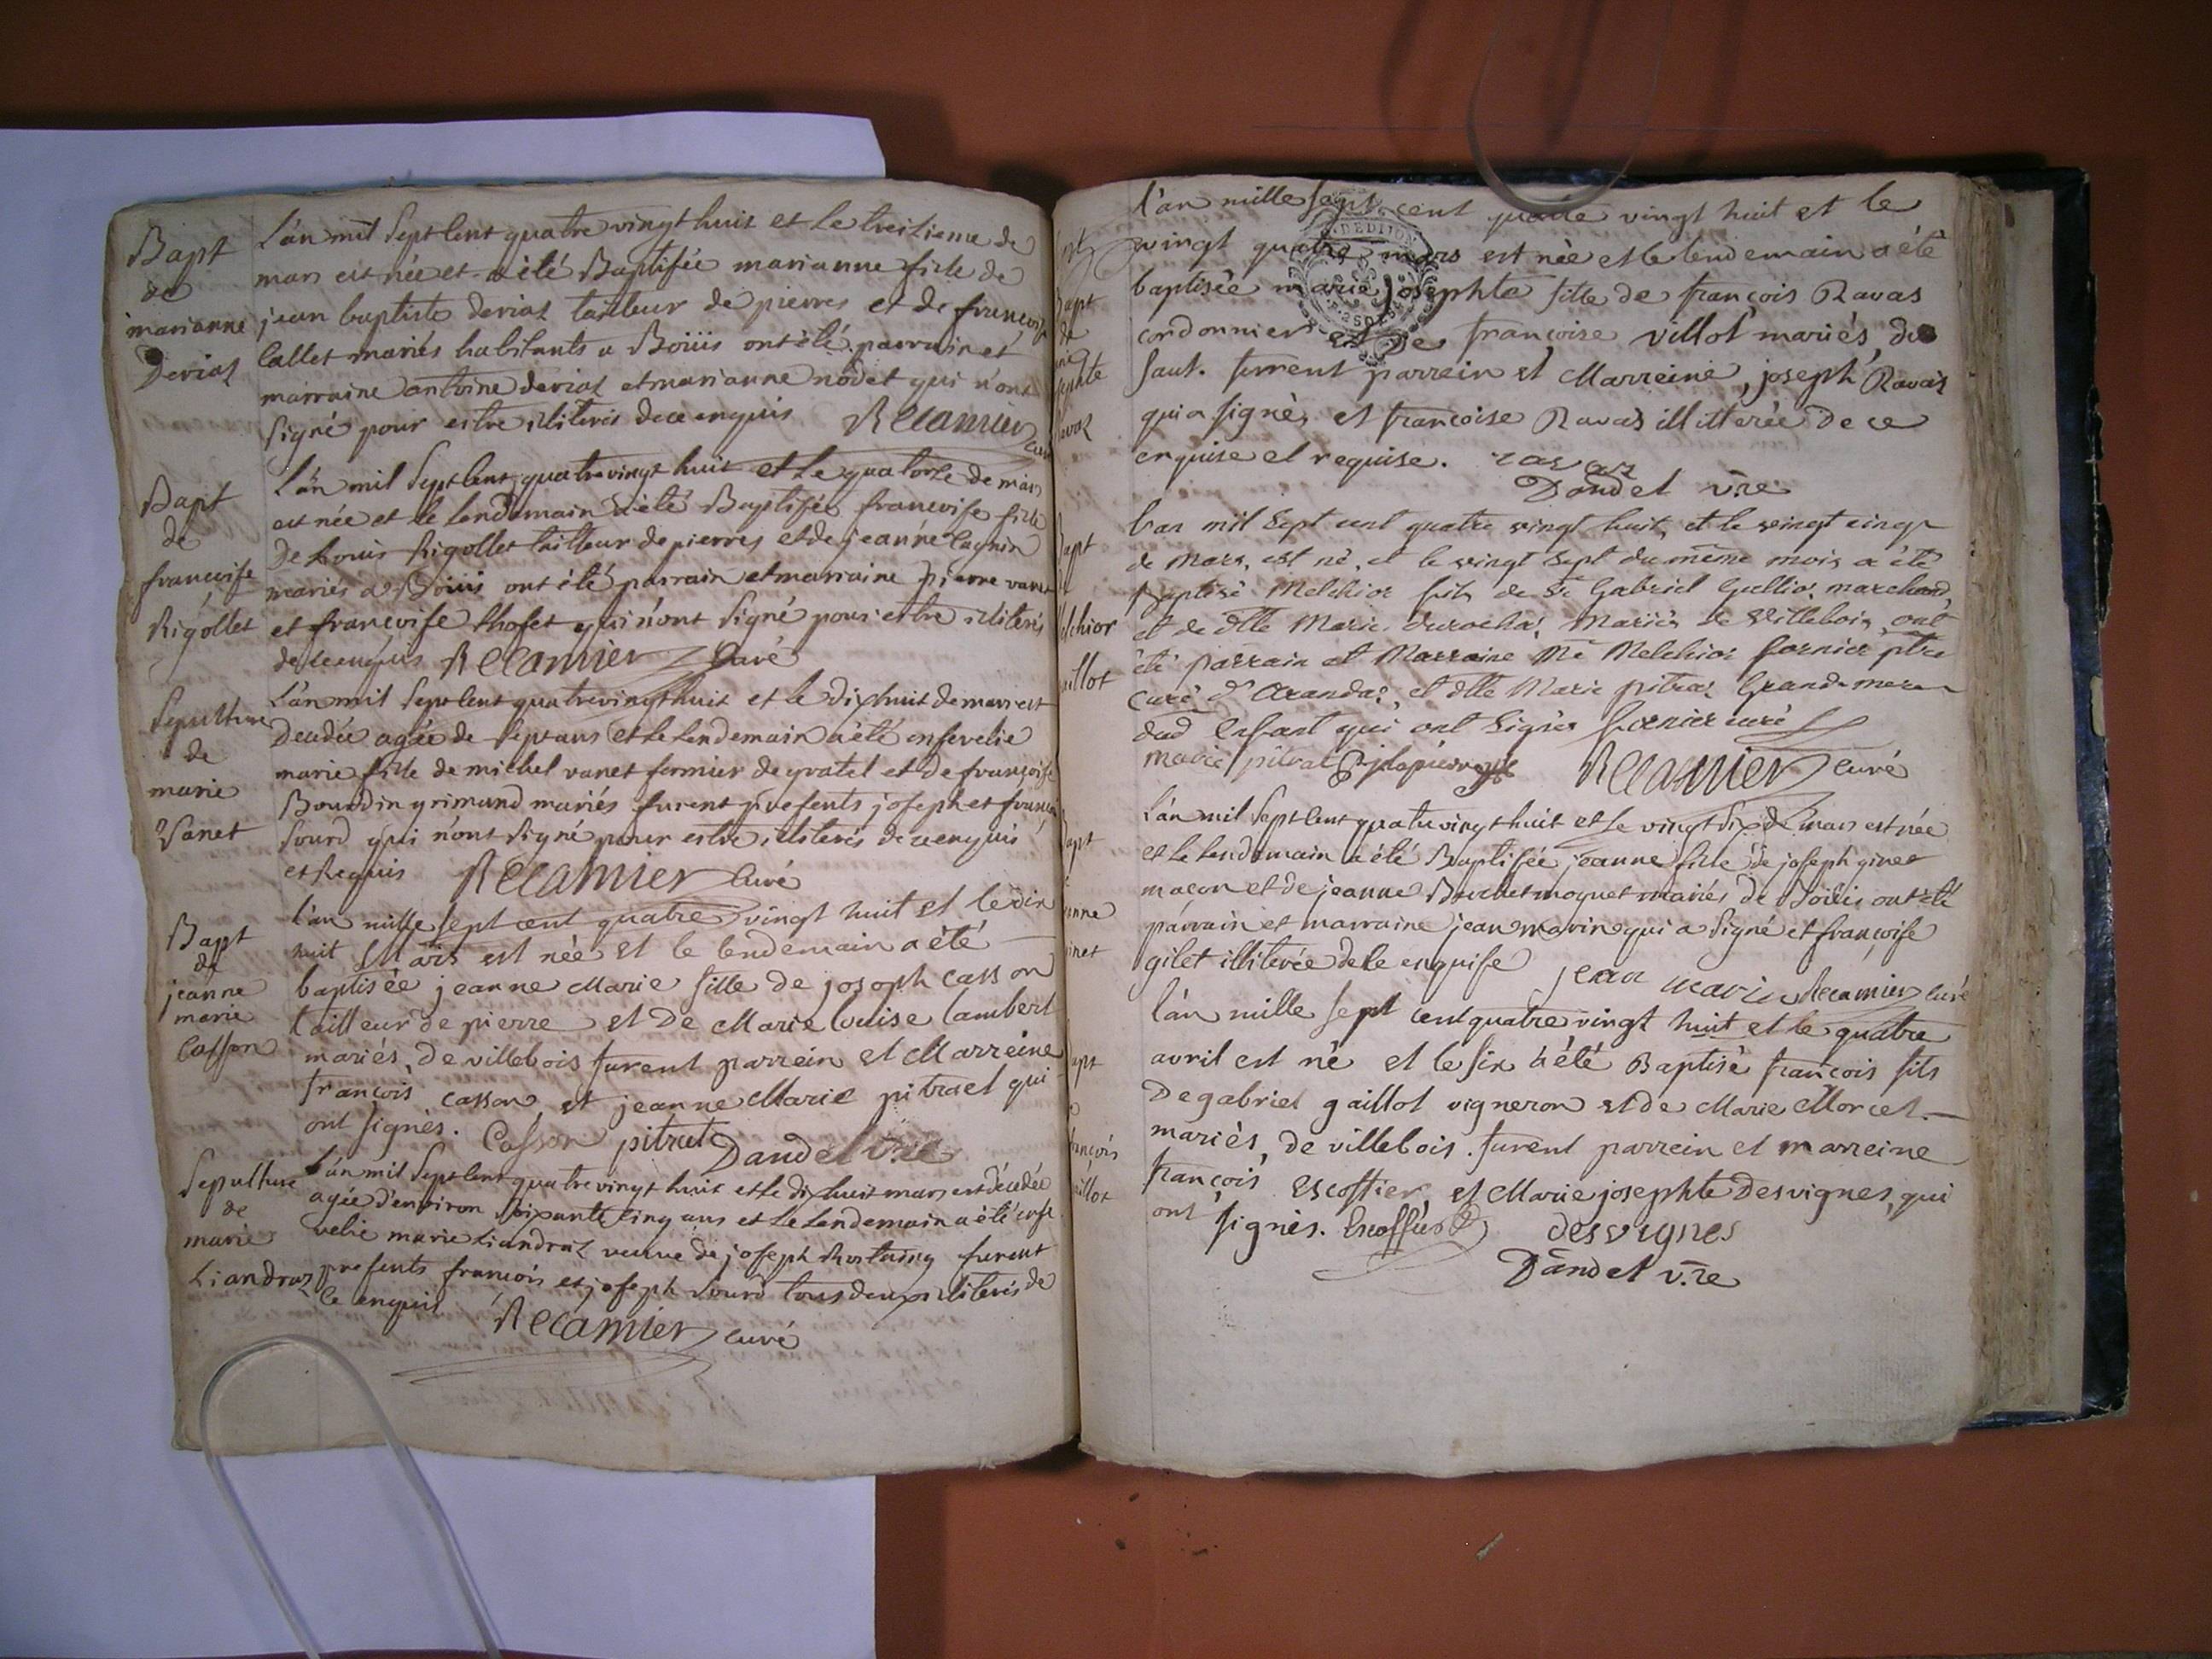 Bapt
de
marianne
Derias
L'an mil Sept Cent quatre vingt huit et Le treisieme de
mars est née et a été Baptisée marianne fille de
jean baptiste derias tailleur de pierres et de françoise
Callet mariés habitants a Boüis ont été parrain et
marraine antoine derias et marianne nodet qui n'ont
signé pour estre illiterés de ce enquis Recamier curé
Bapt
de
françoise
Rigollet
L'an mil Sept Cent quatre vingt huit et Le quatorze de mars
est née et le Lendemain a été Baptisée françoise fille
De Louis Rigollet tailleur de pierres et de jeanne Cagnin
mariés a Boüis ont été parrain et marraine pierre vanet
et françoise thoset qui n'ont signé pour estre illiterés
de ce enquis Recamier Curé
Sepulture
de
marie
Vanet
L'an mil Sept Cent quatre vingt huit et Le dix huit de mars est
Decedée agée de sept ans et Le Lendemain a été ensevelie
marie fille de michel vanet fermier de gratel et de françoise
Bourdin grimand mariés furent presents joseph et françois
Sourd qui n'ont signé pour estre illiterés de ce enquis
et Requis Recamier Curé
Bapt
de
jeanne
marie
Casson
l'an mille sept cent quatre vingt huit et le dix
huit Mars est née et le lendemain a été
baptisée jeanne Marie fille de joseph Casson
tailleur de pierre et De Marie Louise Lambert
mariés, de villebois furent parrein et Marreine
françois casson, et jeanne Marie pitrael qui
ont signés. Casson pitrat Dandel v.re
Sepulture
de
marie
Liandraz
L'an mil Sept Cent quatre vingt huit et Le dix huit mars est décédée
agée d'environ soixante cinq ans et Le Lendemain a été ense
velie marie Liandraz veuve de joseph Rostaing furent
presents francois et joseph Sourd tous deux illiterés de
Ce enquis Recamier curé
Bapt
de
sephte
Ravaz
l'an mille sept cent quatre vingt huit et le
vingt quatre mars est née et le lendemain a été
baptisée marie josephte fille de françois Ravas
cordonnier et De françoise villot mariés, du
Saut. furent parrein et Marreine, joseph Ravas
qui a signé, et françoise Ravas illitterée de ce
enquise et requise. ravaz
Dandel v.re
Bapt
de
elchior
uillot
L'an mil Sept cent quatre vingt huit, et le vingt cinq
de Mars, est né, et le vingt sept du même mois a été
Baptisé Melchior fils de Sr Gabriel Guillot, marchand,
et de dlle Marie durochat, Mariés de Villebois, ont
été parrain et Marraine Me Melchior fornier ptre
curé d'Arandas, et dlle Marie pitrat Grande mere
dud Enfant qui ont signés fornier curé
marie pitrat Recamier curé
Bapt
anne
inet
L'an mil Sept Cent quatre vingt huit et Le vingt six de mars est née
et Le Lendemain a été Baptisée jeanne fille de joseph ginet
maçon et de jeanne Brochet moquet mariés de Boüis ont été
parrain et marraine jean marin qui a signé et françoise
gilet illiterée de Ce enquise jean marin Recamier curé
Bapt
de
ançois
aillot
l'an mille sept Cent quatre vingt huit et le quatre
avril est né et le six a été Baptisé françois fils
De gabriel gaillot vigneron et de Marie Morcel.
mariés, de villebois. furent parrein et marreine
françois Escoffier, et Marie josephte Desvignes, qui
ont signés. Escoffier desvignes
Dandel v.re